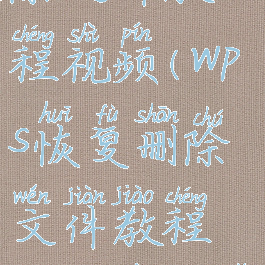 chéng shì pín
程视频(WP
huī fù shān chú
S恢复删除
wén jiàn jiào chéng
文件教程